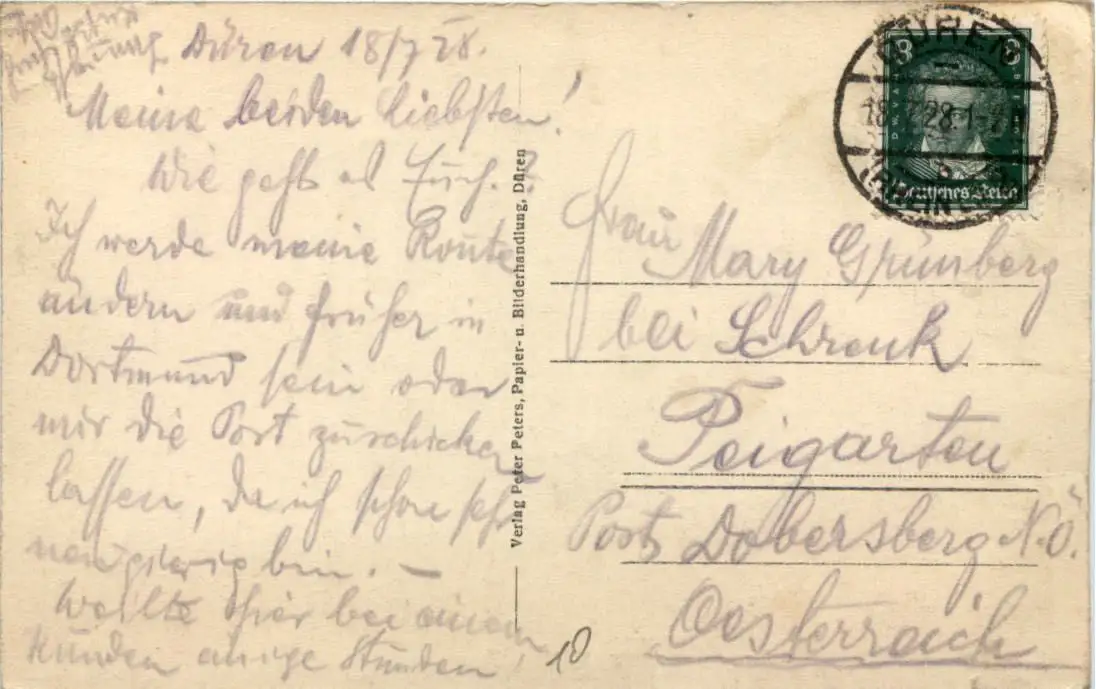 Düren 18/7 28.
Meine beiden Liebsten!
Wie geht es Euch.?
Ich werde meine Route
ändern und früher in
Dortmund sein oder
mir die Post zuschicken
lassen, da ich schon sehr
neugierig bin. —
Weilte hier bei einem
Kunden einige Stunden!
10
Verlag Peter Peters, Papier- u. Bilderhandlung, Düren
DÜREN
18.7.28.1
(RHEINLD)
8 8
Deutsches Reich
Frau Mary Grünberg
bei Schrenk
Peigarten
Post Dobersberg N.Ö.
Oesterreich